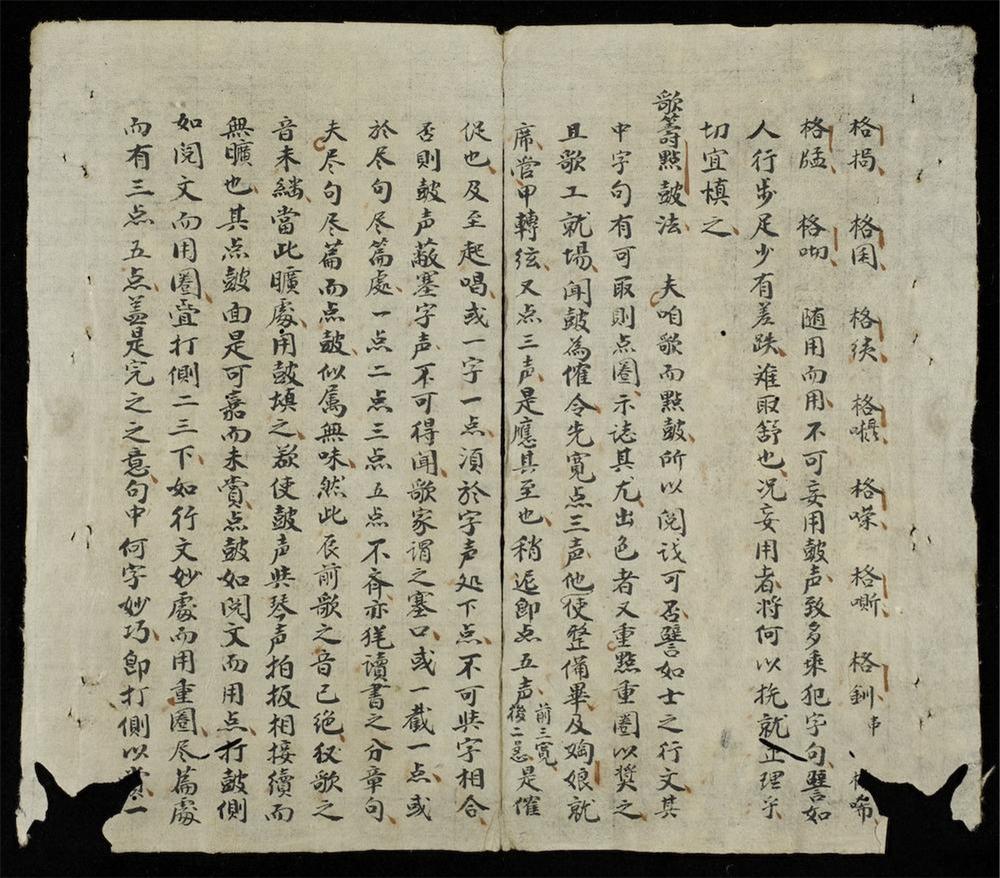 格挶 格用 格 格 格嘹 格嘶 格釧 咘
格 格 随用而用不可妄用皷声致多乘犯字句譬如
人行步足少有差跌难取舒也况妄用者将何以挽就正理乎
切宜慎之
歌籌點皷法 夫咱歌而點皷所以閲 可否譬如士之行文其
中字句有可取則点圈示誌其尤出色者又重點重圈以奨之
且歌工就場闻皷為催令先寛点三声他使整備畢及 娘就
席當甲轉弦又点三声是應其至也稍遅即点五声前三寛後二 是催
促也及至起唱或一字一点須於字声処下点不可與字相合
否則皷声蔽塞字声不可得闻歌家谓之塞口或一截一点或
於尽句尽篇處一点二点三点五点不斉亦 讀書之分章句
夫尽句尽篇而点皷似属無味然此辰前歌之音已绝 歌之
音未 當此曠處用皷填之欲使皷声與琴声拍板相接續而
無曠也其点皷面是可嘉而未賞点皷如閲文而用点打皷側
如閲文而用圈 打側二三下如行文妙處而用重圈尽篇處
而有三点五点盖是完之之意句中何字妙巧即打側以賞一